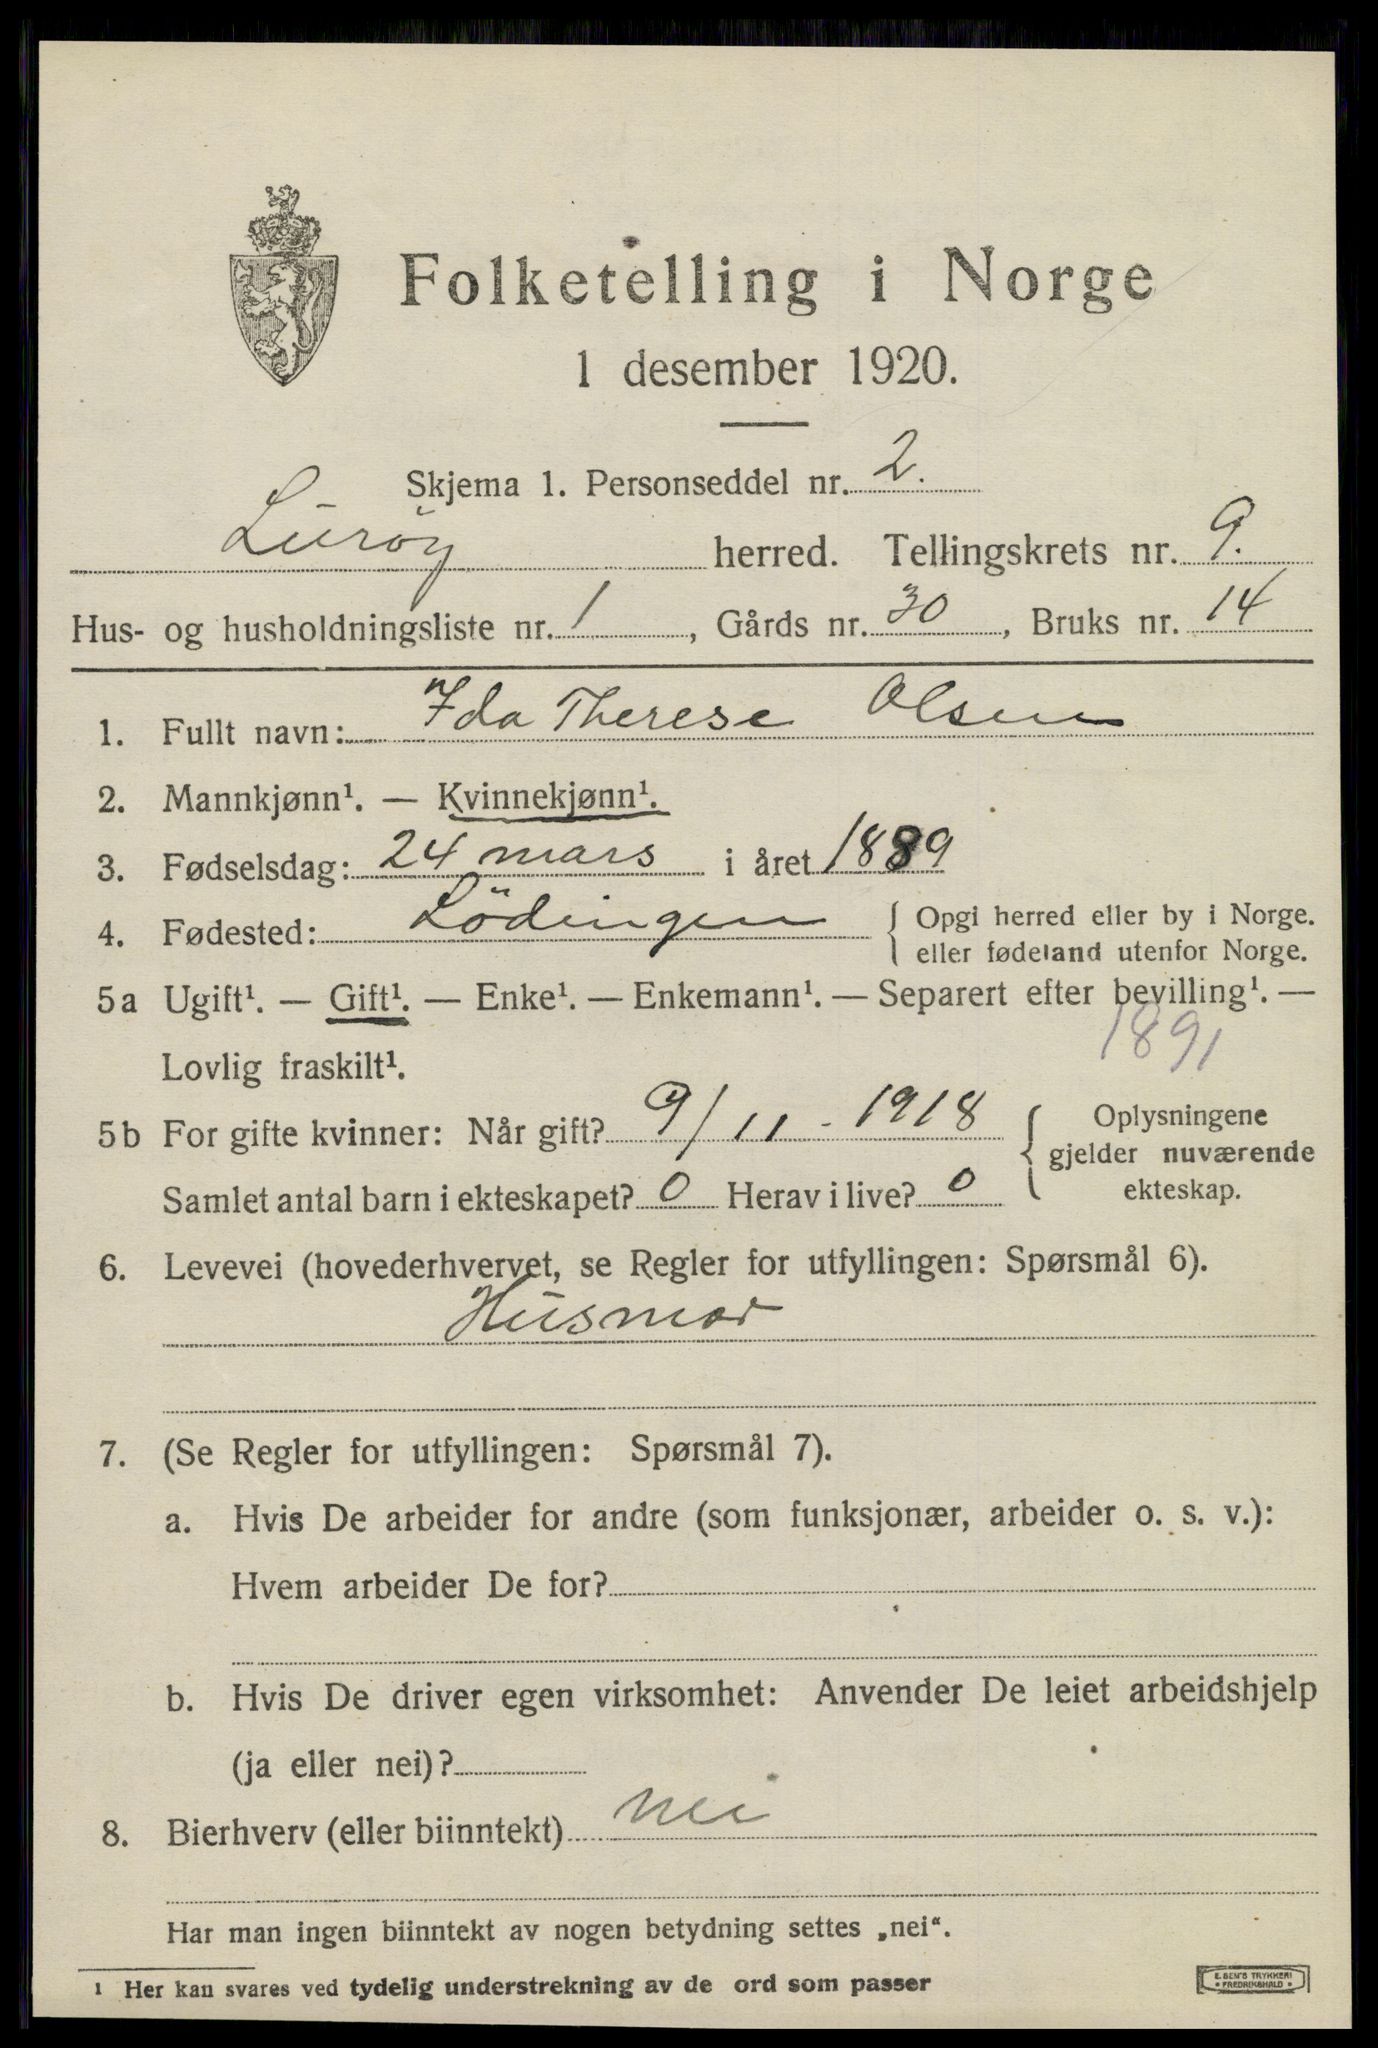 Folketelling i Norge
1 desember 1920.
Skjema 1. Personseddel nr. 2.
Lurøy herred. Tellingskrets nr. 9.
Hus- og husholdningsliste nr. 1, Gårds nr. 30, Bruks nr. 14
1. Fullt navn: Ida Therese Olsen
2. Mannkjønn¹. — Kvinnekjønn¹.
3. Fødselsdag: 24 mars i året 1889
4. Fødested: Lödingen { Opgi herred eller by i Norge.
eller fødeland utenfor Norge.
5a Ugift¹. — Gift¹. — Enke¹. — Enkemann¹. — Separert efter bevilling¹. —
1891
Lovlig fraskilt¹.
5b For gifte kvinner: Når gift? 9/11 - 1918 { Oplysningene
gjelder nuværende
Samlet antal barn i ekteskapet? 0 Herav i live? 0 ekteskap.
6. Levevei (hovederhvervet, se Regler for utfyllingen: Spørsmål 6).
Husmor
7. (Se Regler for utfyllingen: Spørsmål 7).
a. Hvis De arbeider for andre (som funksjonær, arbeider o. s. v.):
Hvem arbeider De for?
b. Hvis De driver egen virksomhet: Anvender De leiet arbeidshjelp
(ja eller nei)?
8. Bierhverv (eller biinntekt) nei
Har man ingen biinntekt av nogen betydning settes „nei“.
¹ Her kan svares ved tydelig understrekning av de ord som passer
E. SEM'S TRYKKERI
• FREDRIKSHALD •